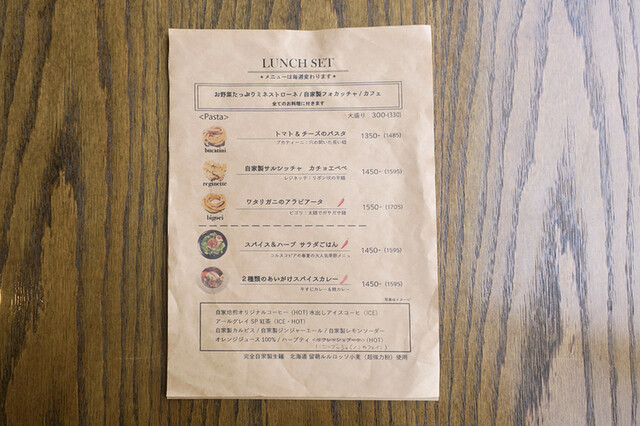 LUNCH SET
★メニューは毎週変わります★
お野菜たっぷりミネストローネ / 自家製フォカッチャ / カフェ
全てのお料理に付きます
<Pasta> 大盛り 300-(330)
トマト&チーズのパスタ 1350-(1485)
bucatini ブカティーニ:穴の開いた長い麺
自家製サルシッチャ カチョエペペ 1450-(1595)
reginette レジネッテ:リボン状の平麺
ワタリガニのアラビアータ 1550-(1705)
bigoei ビゴリ:太麺でザラザラ麺
スパイス&ハーブ サラダごはん 1450-(1595)
2種類のあいがけスパイスカレー 1450-(1595)
写真はイメージ
自家焙煎オリジナルコーヒー (HOT) 水出しアイスコーヒー (ICE)
アールグレイSP紅茶 (ICE・HOT)
自家製カルピス / 自家製ジンジャーエール / 自家製レモンソーダー
オレンジジュース100% / ハーブティ (HOT)
完全自家製生麺 北海道 留萌ルルロッソ小麦(超強力粉)使用